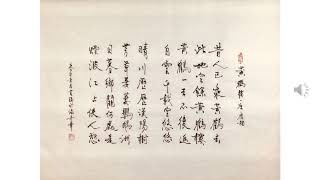 黄鶴樓 唐 崔顥
昔人已乘黄鶴去
此地空餘黄鶴樓
黄鶴一去不復返
白雲千載空悠悠
晴川歷歷漢陽樹
芳草萋萋鸚鵡洲
日暮鄉關何處是
煙波江上使人愁